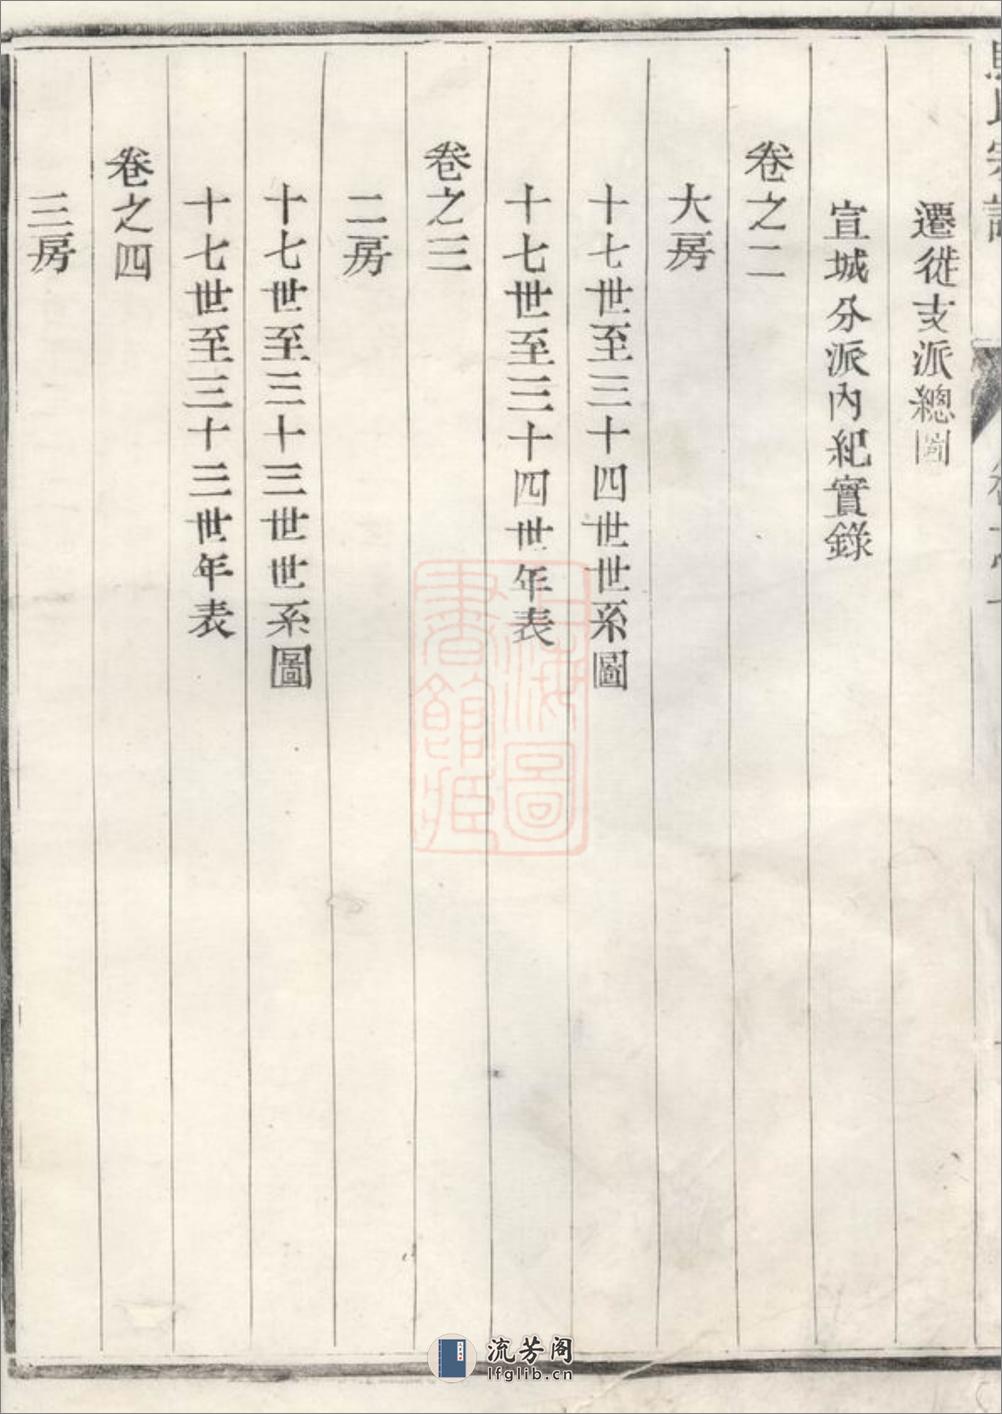 遷徙支派總圖
宣城分派內紀實錄
卷之二
大房
十七世至三十四世世系圖
十七世至三十四世年表
卷之三
二房
十七世至三十三世世系圖
十七世至三十三世年表
卷之四
三房
上海圖
書館藏
流芳阁
lfglib.cn